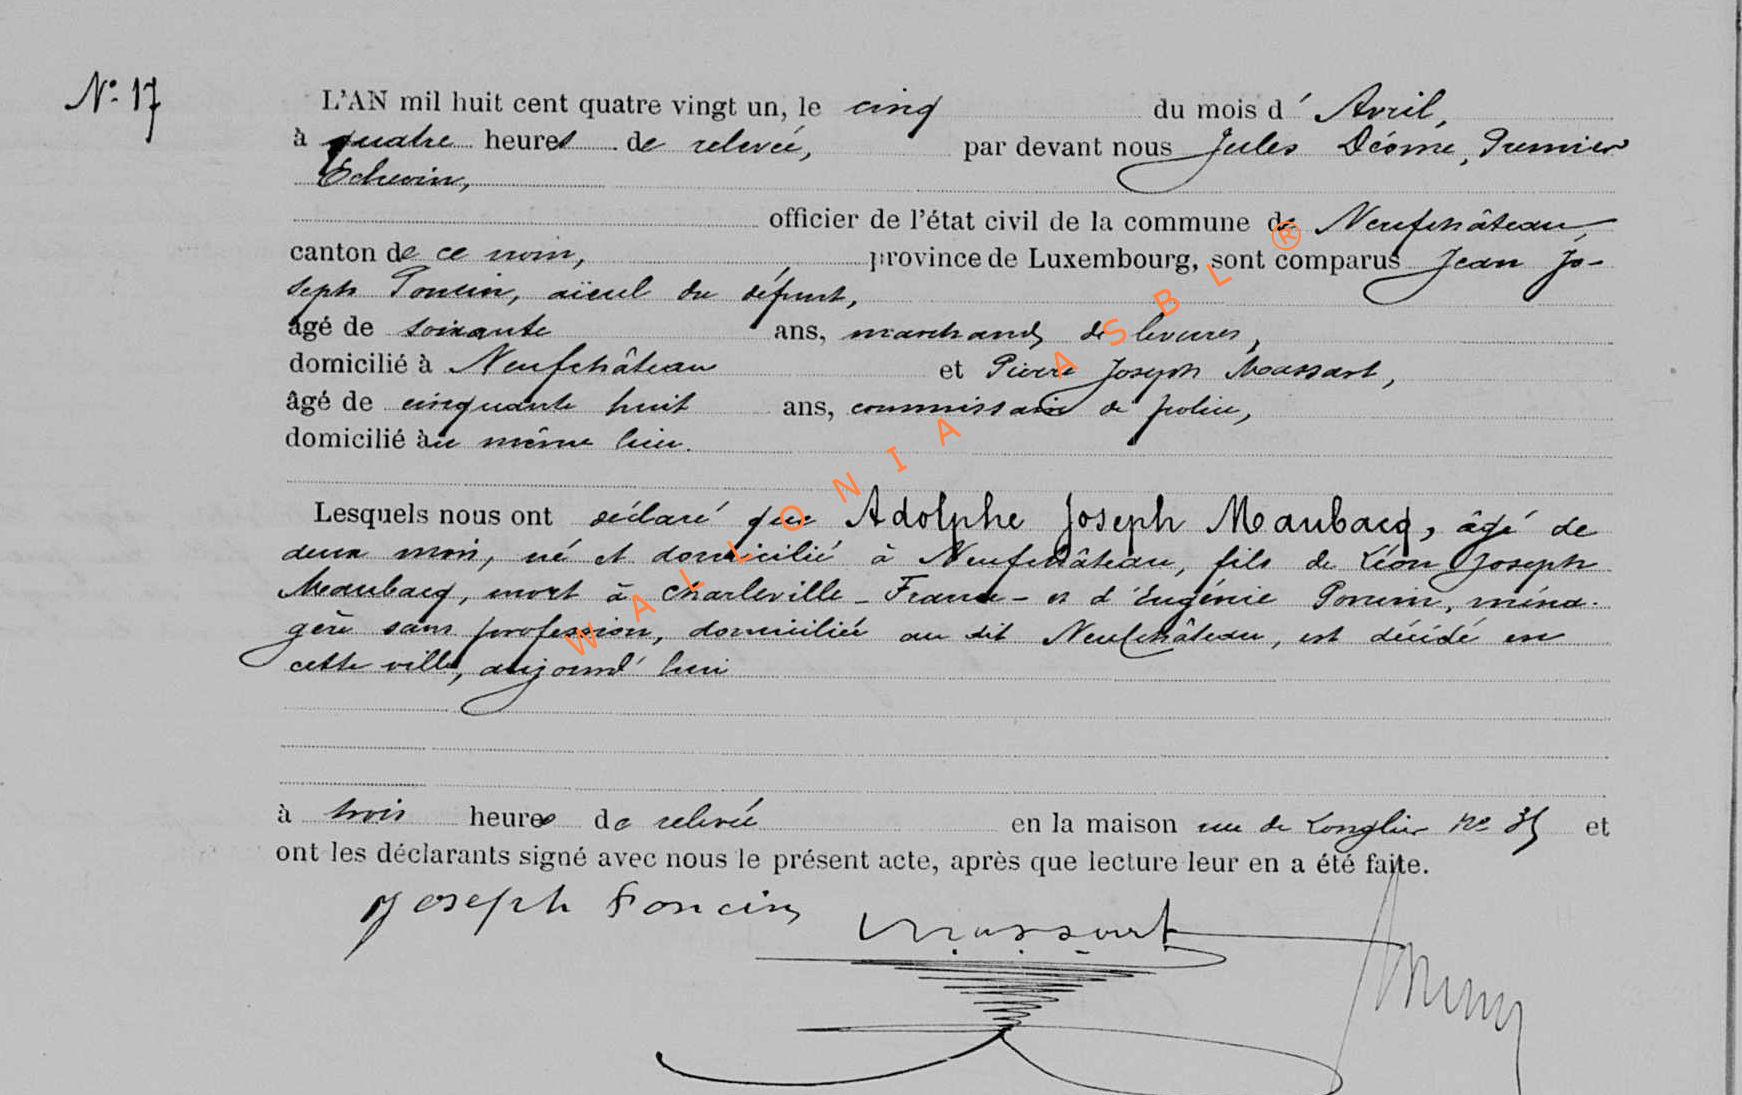 N° 17
L'AN mil huit cent quatre vingt un, le cinq du mois d'Avril,
à quatre heures de relevée, par devant nous Jules Déome, Premier
Echevin,
officier de l'état civil de la commune de Neufchâteau,
canton de ce nom, province de Luxembourg, sont comparus Jean Jo-
seph Poncin, aïeul du défunt,
âgé de soixante ans, marchand de levures,
domicilié à Neufchâteau et Pierre Joseph Massart,
âgé de cinquante huit ans, commissaire de police,
domicilié au même lieu.
Lesquels nous ont déclaré que Adolphe Joseph Maubacq, âgé de
deux mois, né et domicilié à Neufchâteau, fils de Léon Joseph
Maubacq, mort à Charleville - France - et d'Eugénie Poncin, ména-
gère sans profession, domiciliée au dit Neufchâteau, est décédé en
cette ville, aujourd'hui
à trois heures de relevée en la maison rue de Longlier N° 35 et
ont les déclarants signé avec nous le présent acte, après que lecture leur en a été faite.
Joseph Poncin Massart
WALLONIA ASBL ®